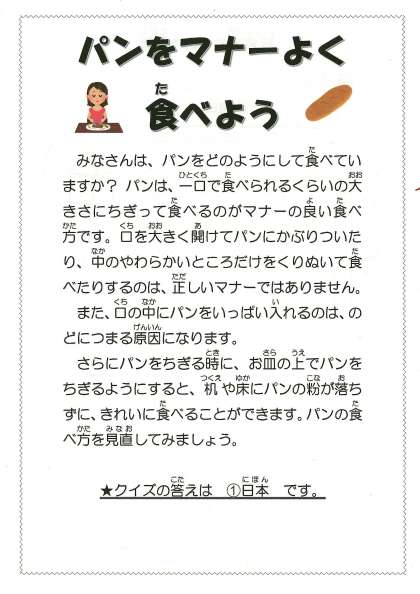 パンをマナーよく
食べよう
みなさんは、パンをどのようにして食べてい
ますか？ パンは、一口で食べられるくらいの大
きさにちぎって食べるのがマナーの良い食べ
方です。口を大きく開けてパンにかぶりついた
り、中のやわらかいところだけをくりぬいて食
べたりするのは、正しいマナーではありません。
また、口の中にパンをいっぱい入れるのは、の
どにつまる原因になります。
さらにパンをちぎる時に、お皿の上でパンを
ちぎるようにすると、机や床にパンの粉が落ち
ずに、きれいに食べることができます。パンの食
べ方を見直してみましょう。
★クイズの答えは　①日本　です。